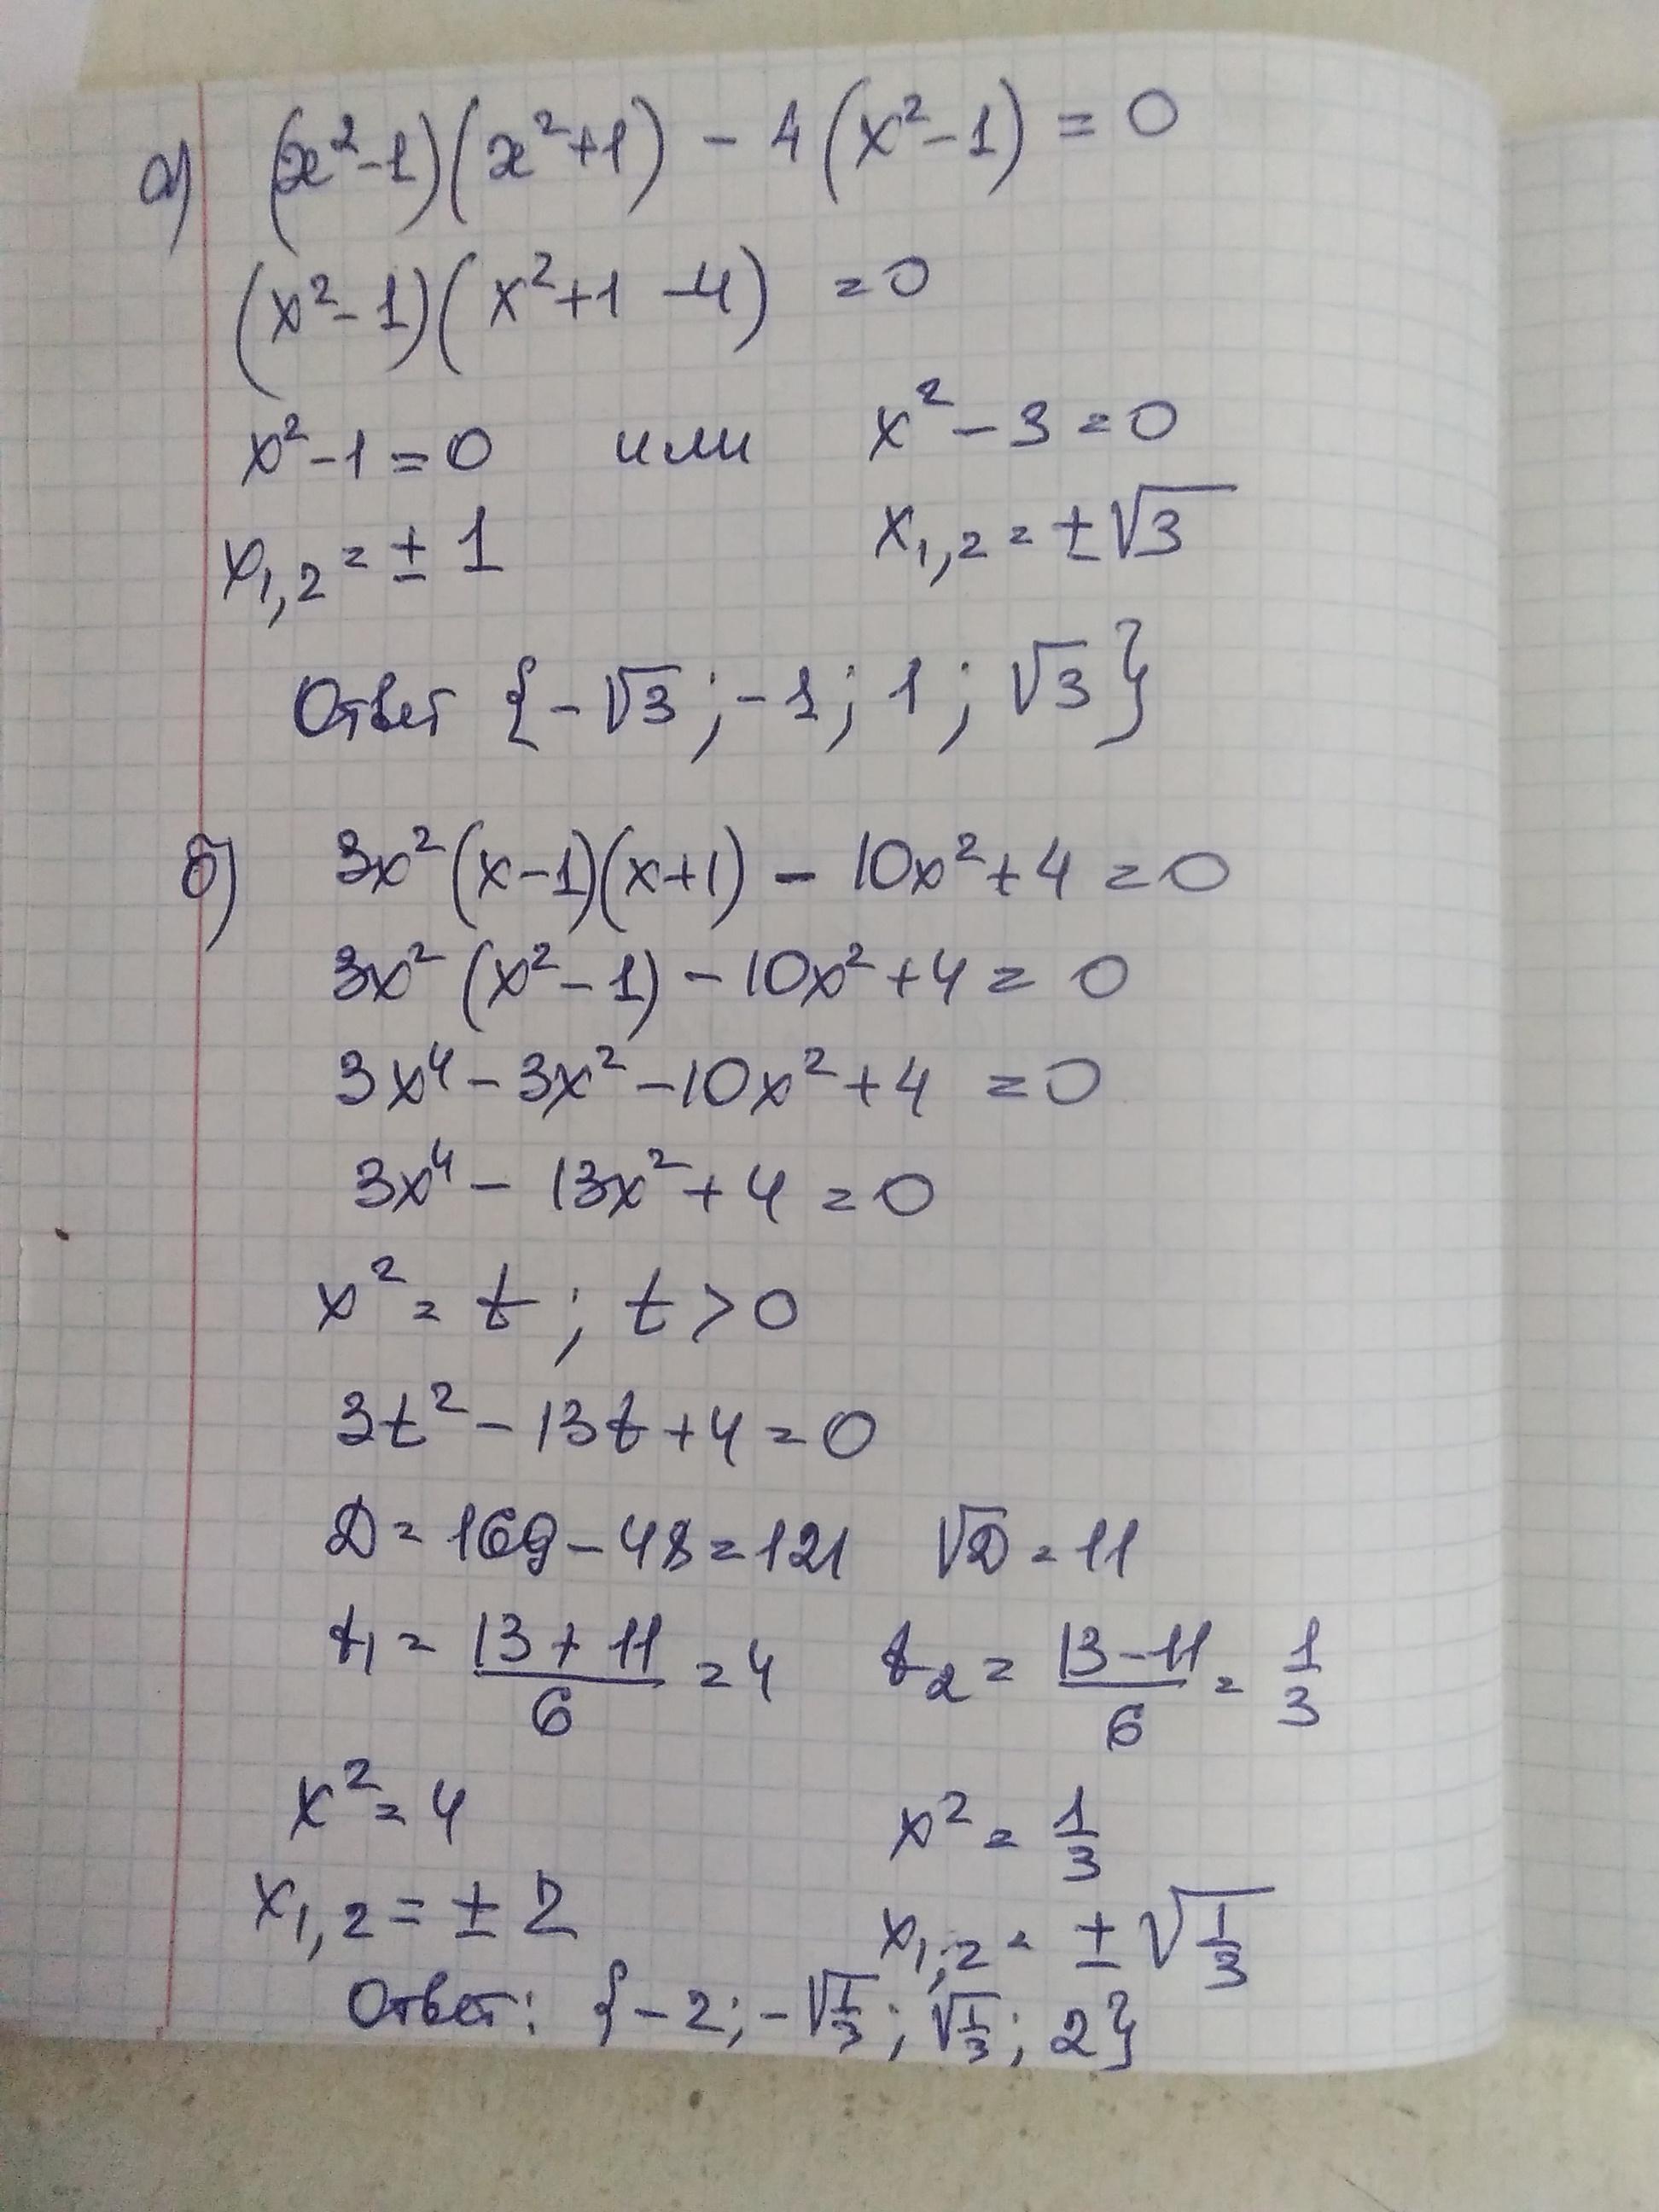 а) (x²-1)(x²+1) - 4(x²-1) = 0
(x²-1)(x²+1-4) = 0
x²-1=0 или x²-3=0
x₁,₂ = ± 1 x₁,₂ = ±√3
Ответ {-√3; -1; 1; √3}
б) 3x²(x-1)(x+1) - 10x²+4=0
3x²(x²-1) - 10x²+4 = 0
3x⁴ - 3x² - 10x² + 4 = 0
3x⁴ - 13x² + 4 = 0
x² = t; t > 0
3t² - 13t + 4 = 0
D = 169 - 48 = 121 √D = 11
t₁ = (13 + 11)/6 = 4 t₂ = (13 - 11)/6 = 1/3
x² = 4 x² = 1/3
x₁,₂ = ± 2 x₁;₂ = ± √(1/3)
Ответ: {-2; -√(1/3); √(1/3); 2}